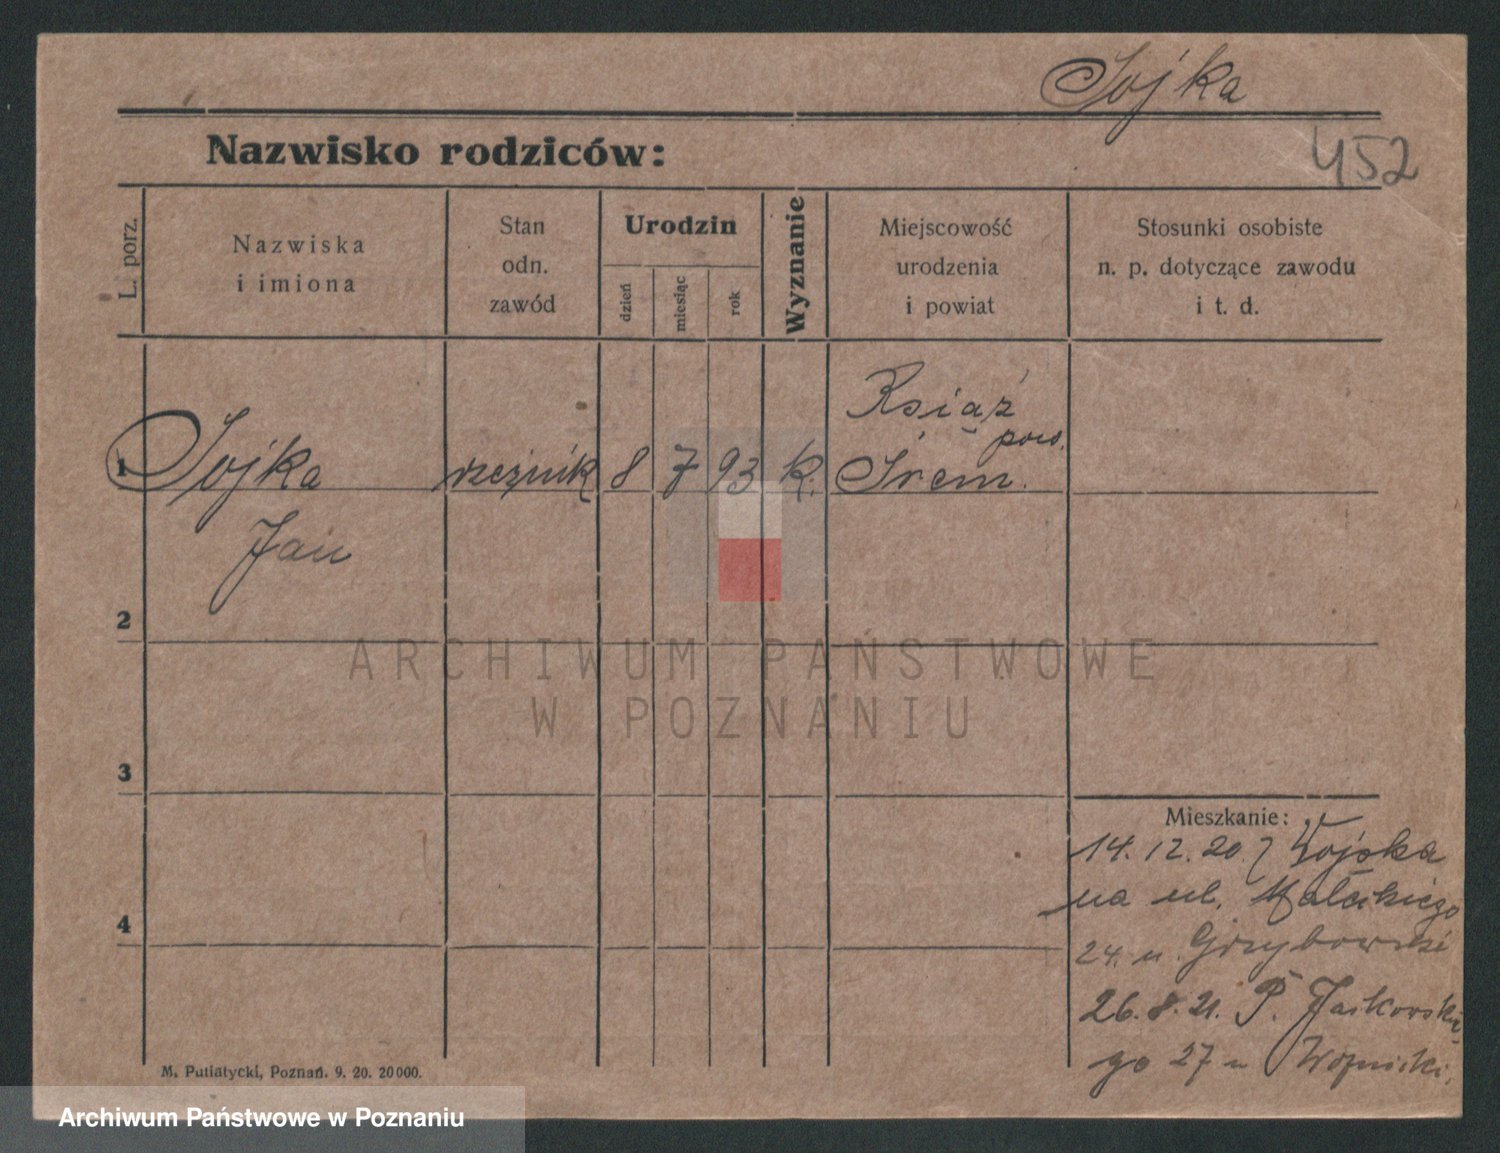 Sojka
452
Nazwisko rodziców:
L. porz.
Nazwiska
i imiona
Stan
odn.
zawód
Urodzin
dzień
miesiąc
rok
Wyznanie
Miejscowość
urodzenia
i powiat
Stosunki osobiste
n. p. dotyczące zawodu
i t. d.
Książ
pow.
1 Sojka rzeźnik 8 7 93 k. Śrem.
Jan
2
ARCHIWUM PAŃSTWOWE
W POZNANIU
3
Mieszkanie:
14.12.20. z Wojska
na ul. Małeckiego
4
24. u. Grzybowski
26.8.21. P. Jackowskie-
go 27 u Woźnicki.
M. Putiatycki, Poznań. 9. 20. 20000.
Archiwum Państwowe w Poznaniu